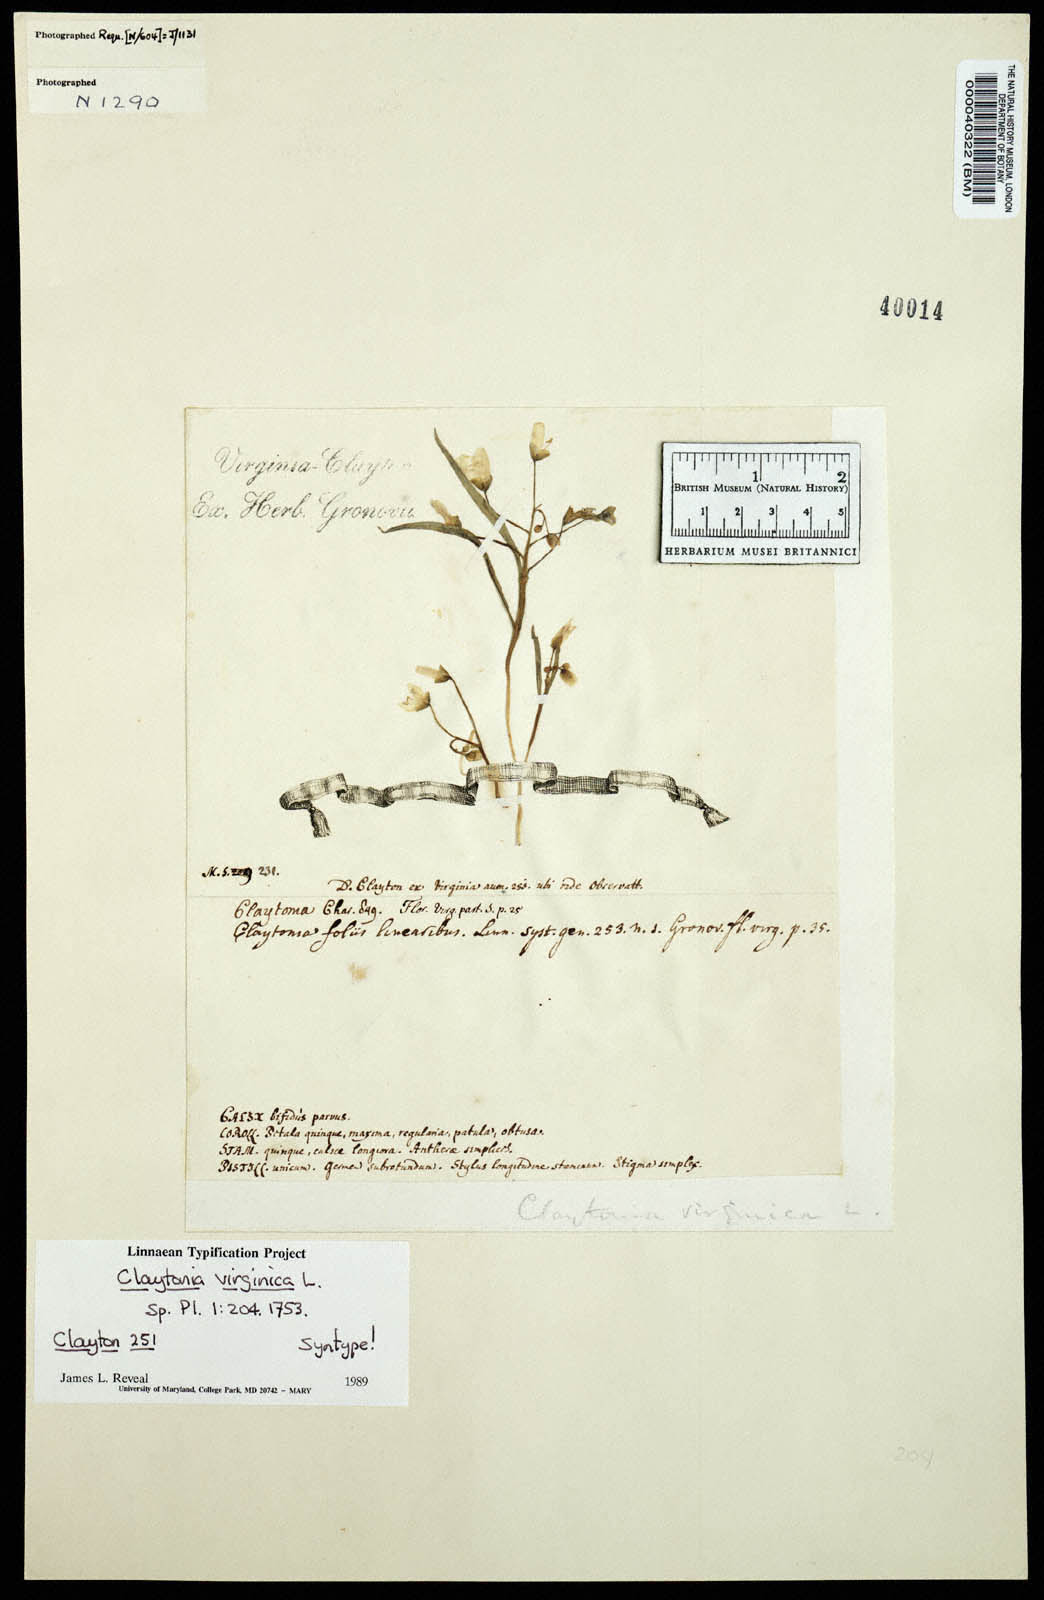 Photographed Requ. [N/604] = J/1131
Photographed
N 1290
THE NATURAL HISTORY MUSEUM, LONDON
DEPARTMENT OF BOTANY
000040322 (BM)
40014
Virginia - Clayton
Ex. Herb. Gronovii
1 2
BRITISH MUSEUM (NATURAL HISTORY)
1 2 3 4 5
HERBARIUM MUSEI BRITANNICI
M.S. 231.
D. Clayton ex Virginia num. 251. ubi vide observatt.
Claytonia Char. 849. Flor. Virg. part. 1. p. 25
Claytonia foliis linearibus. Linn. syst. gen. 253. n. 1. Gronov. fl. virg. p. 35.
CALYX bifidus parvus.
COROLL. Petala quinque, maxima, regularia, patula, obtusa.
STAM. quinque, calice longiora. Antherae simplices.
PISTILL. unicum. Germen subrotundum. Stylus longitudine staminum. Stigma simplex.
Claytonia virginica L.
Linnaean Typification Project
Claytonia virginica L.
Sp. Pl. 1:204. 1753.
Clayton 251 Syntype!
James L. Reveal 1989
University of Maryland, College Park, MD 20742 – MARY
204